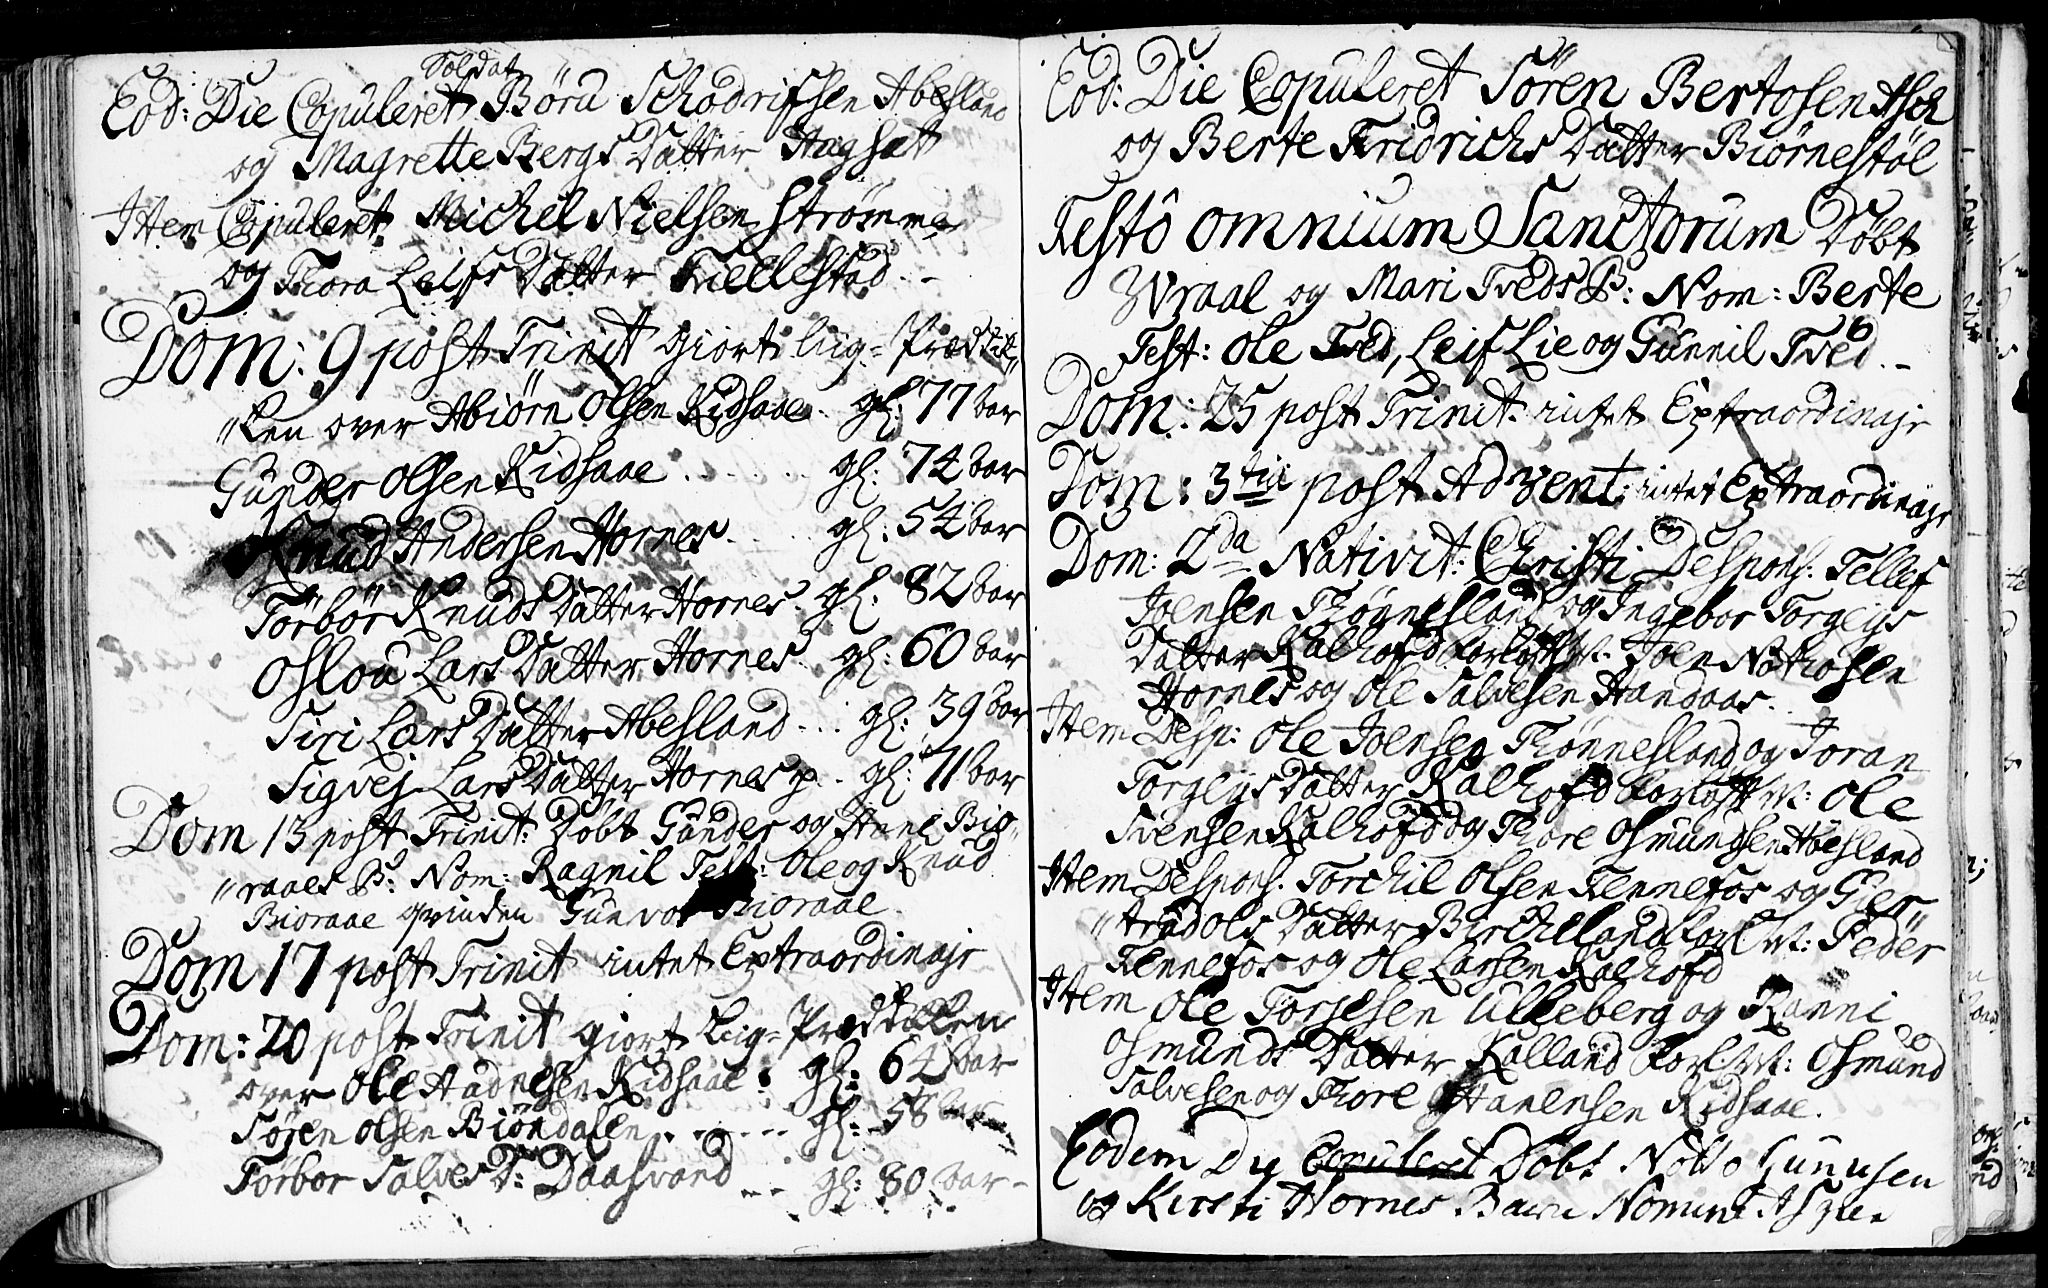 Soldat
Eod: Die Copuleret Böru Schadrifsen Abesland
og Magrette Bergs Datter Hagsæt
Item Copuleret Michel Nielsen Strømme
og Thora Leifs Datter Tvellestad
Dom: 9 post Trinit giort Liig-Præd
ken over Abiörn Olsen Kidsaae gl: 77 aar
Gunder Olsen Kidsaae . . . . gl: 74 aar
Knud Andersen Hornes . . gl: 54 aar
Torbör Knuds Datter Hornes gl: 82 aar
Oslou Lars Datter Hornes gl: 60 aar
Siri Lars Datter Abesland . . gl: 39 aar
Sigvej Lars Datter Hornes gl: 71 aar
Dom 13 post Trinit: Döbt Gunder og Anne Bio-
"raaes B: Nom: Ragnil Test: Ole og Knud
Bioraae qvinden Gunvor Bioraae
Dom 17 post Trinit intet Extraordinajr
Dom: 20 post Trinit giort Liig-Præd
over Ole Aadnesen Kidsaae: gl: 64 aar
Sören Olsen Biöndalen . . . . gl: 58 aar
Torbor Salves D: Daasvand . . gl: 80 aar
Eod: Die Copuleret Sören Bertosen Asch
og Berte Fridrichs Datter Biörnestöl
Festo omnium Sanctorum Döbt
Wraal og Mari Tveds B: Nom: Berte
Test: Ole Tved, Leif Lie og Gunnil Tved
Dom: 25 post Trinit: intet Extraordinajr
Dom: 3tia post Advent: intet Extraordinajr
Dom: 2da Nativit: Christi Despons: Tellef
Joensen Thönnesland og Ingebor Torgeijs
Datter Kalhofd Joen Notto sen
Hornes og Ole Salvesen Handaas
Item Desp: Ole Joensen Thönnesland og Joran
Torgeijs Datter Kalhofd M: Ole
Svensen Kalhofd og Thore Osmundsen Abesland
Item Despons. Torchil Olsen Fennefos og Gier
"trud Ols Datter Birchelland Forl M: Peder
Fennefos og Ole Larsen Kalhofd
Item Ole Torjesen Ulleberg og Ranni
Osmunds Datter Kalland Forl M: Osmund
Salvesen og Thore Hanensen Kidsaae.
Eodem Die Copuleret Döbt Notto Gunusen
og Kirsti Hornes Barn Nomine